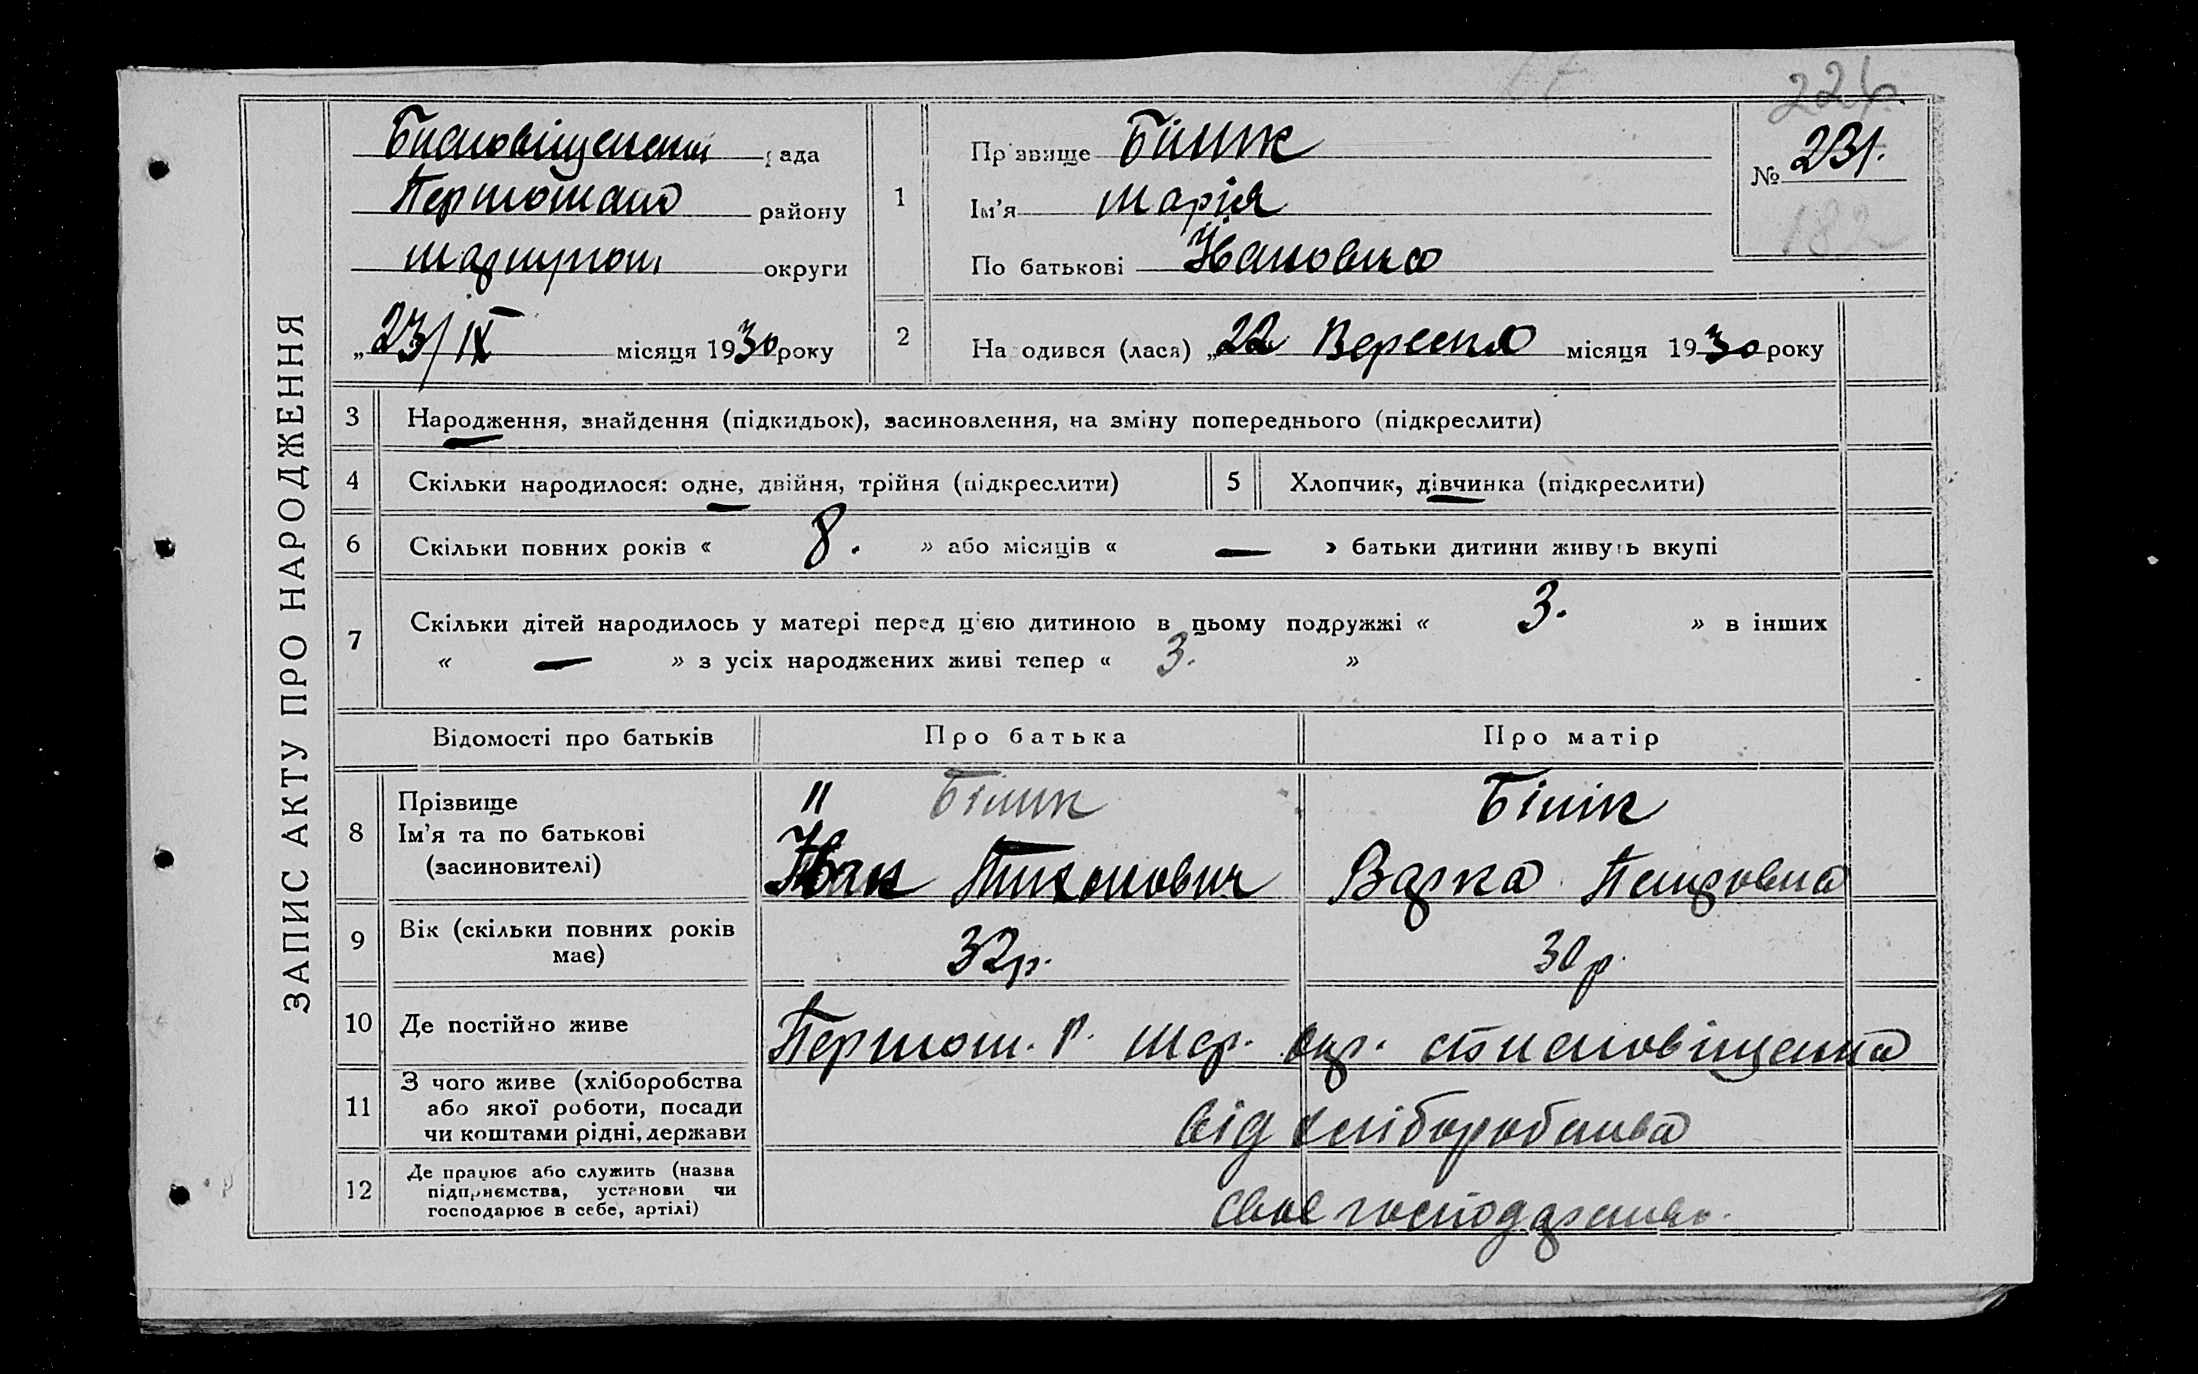 ЗАПИС АКТУ ПРО НАРОДЖЕННЯ
рада
району
округи
„23/IX місяця 1930 року
1
Прізвище Білик
Ім'я Марія
По батькові Івановна
№ 231.
182
2
Народився (лася) „22 Вересня місяця 1930 року
3 Народження, знайдення (підкидьок), засиновлення, на зміну попереднього (підкреслити)
4 Скільки народилося: одне, двійня, трійня (підкреслити)
5 Хлопчик, дівчинка (підкреслити)
6 Скільки повних років « 8. » або місяців « — » батьки дитини живуть вкупі
7 Скільки дітей народилось у матері перед цією дитиною в цьому подружжі « 3. » в інших
« — » з усіх народжених живі тепер « 3. »
Відомості про батьків Про батька Про матір
8 Прізвище
Ім'я та по батькові
(засиновителі)
" Білик
Іван Тихонович
Білік
Варка Петровна
9 Вік (скільки повних років
має)
32р.
30р.
10 Де постійно живе
Першот. Р. Мар. окр. ст
11 З чого живе (хліборобства
або якої роботи, посади
чи коштами рідні, держави
від хліборобства
12 Де працює або служить (назва
підприємства, установи чи
господарює в себе, артілі)
своє господарство.